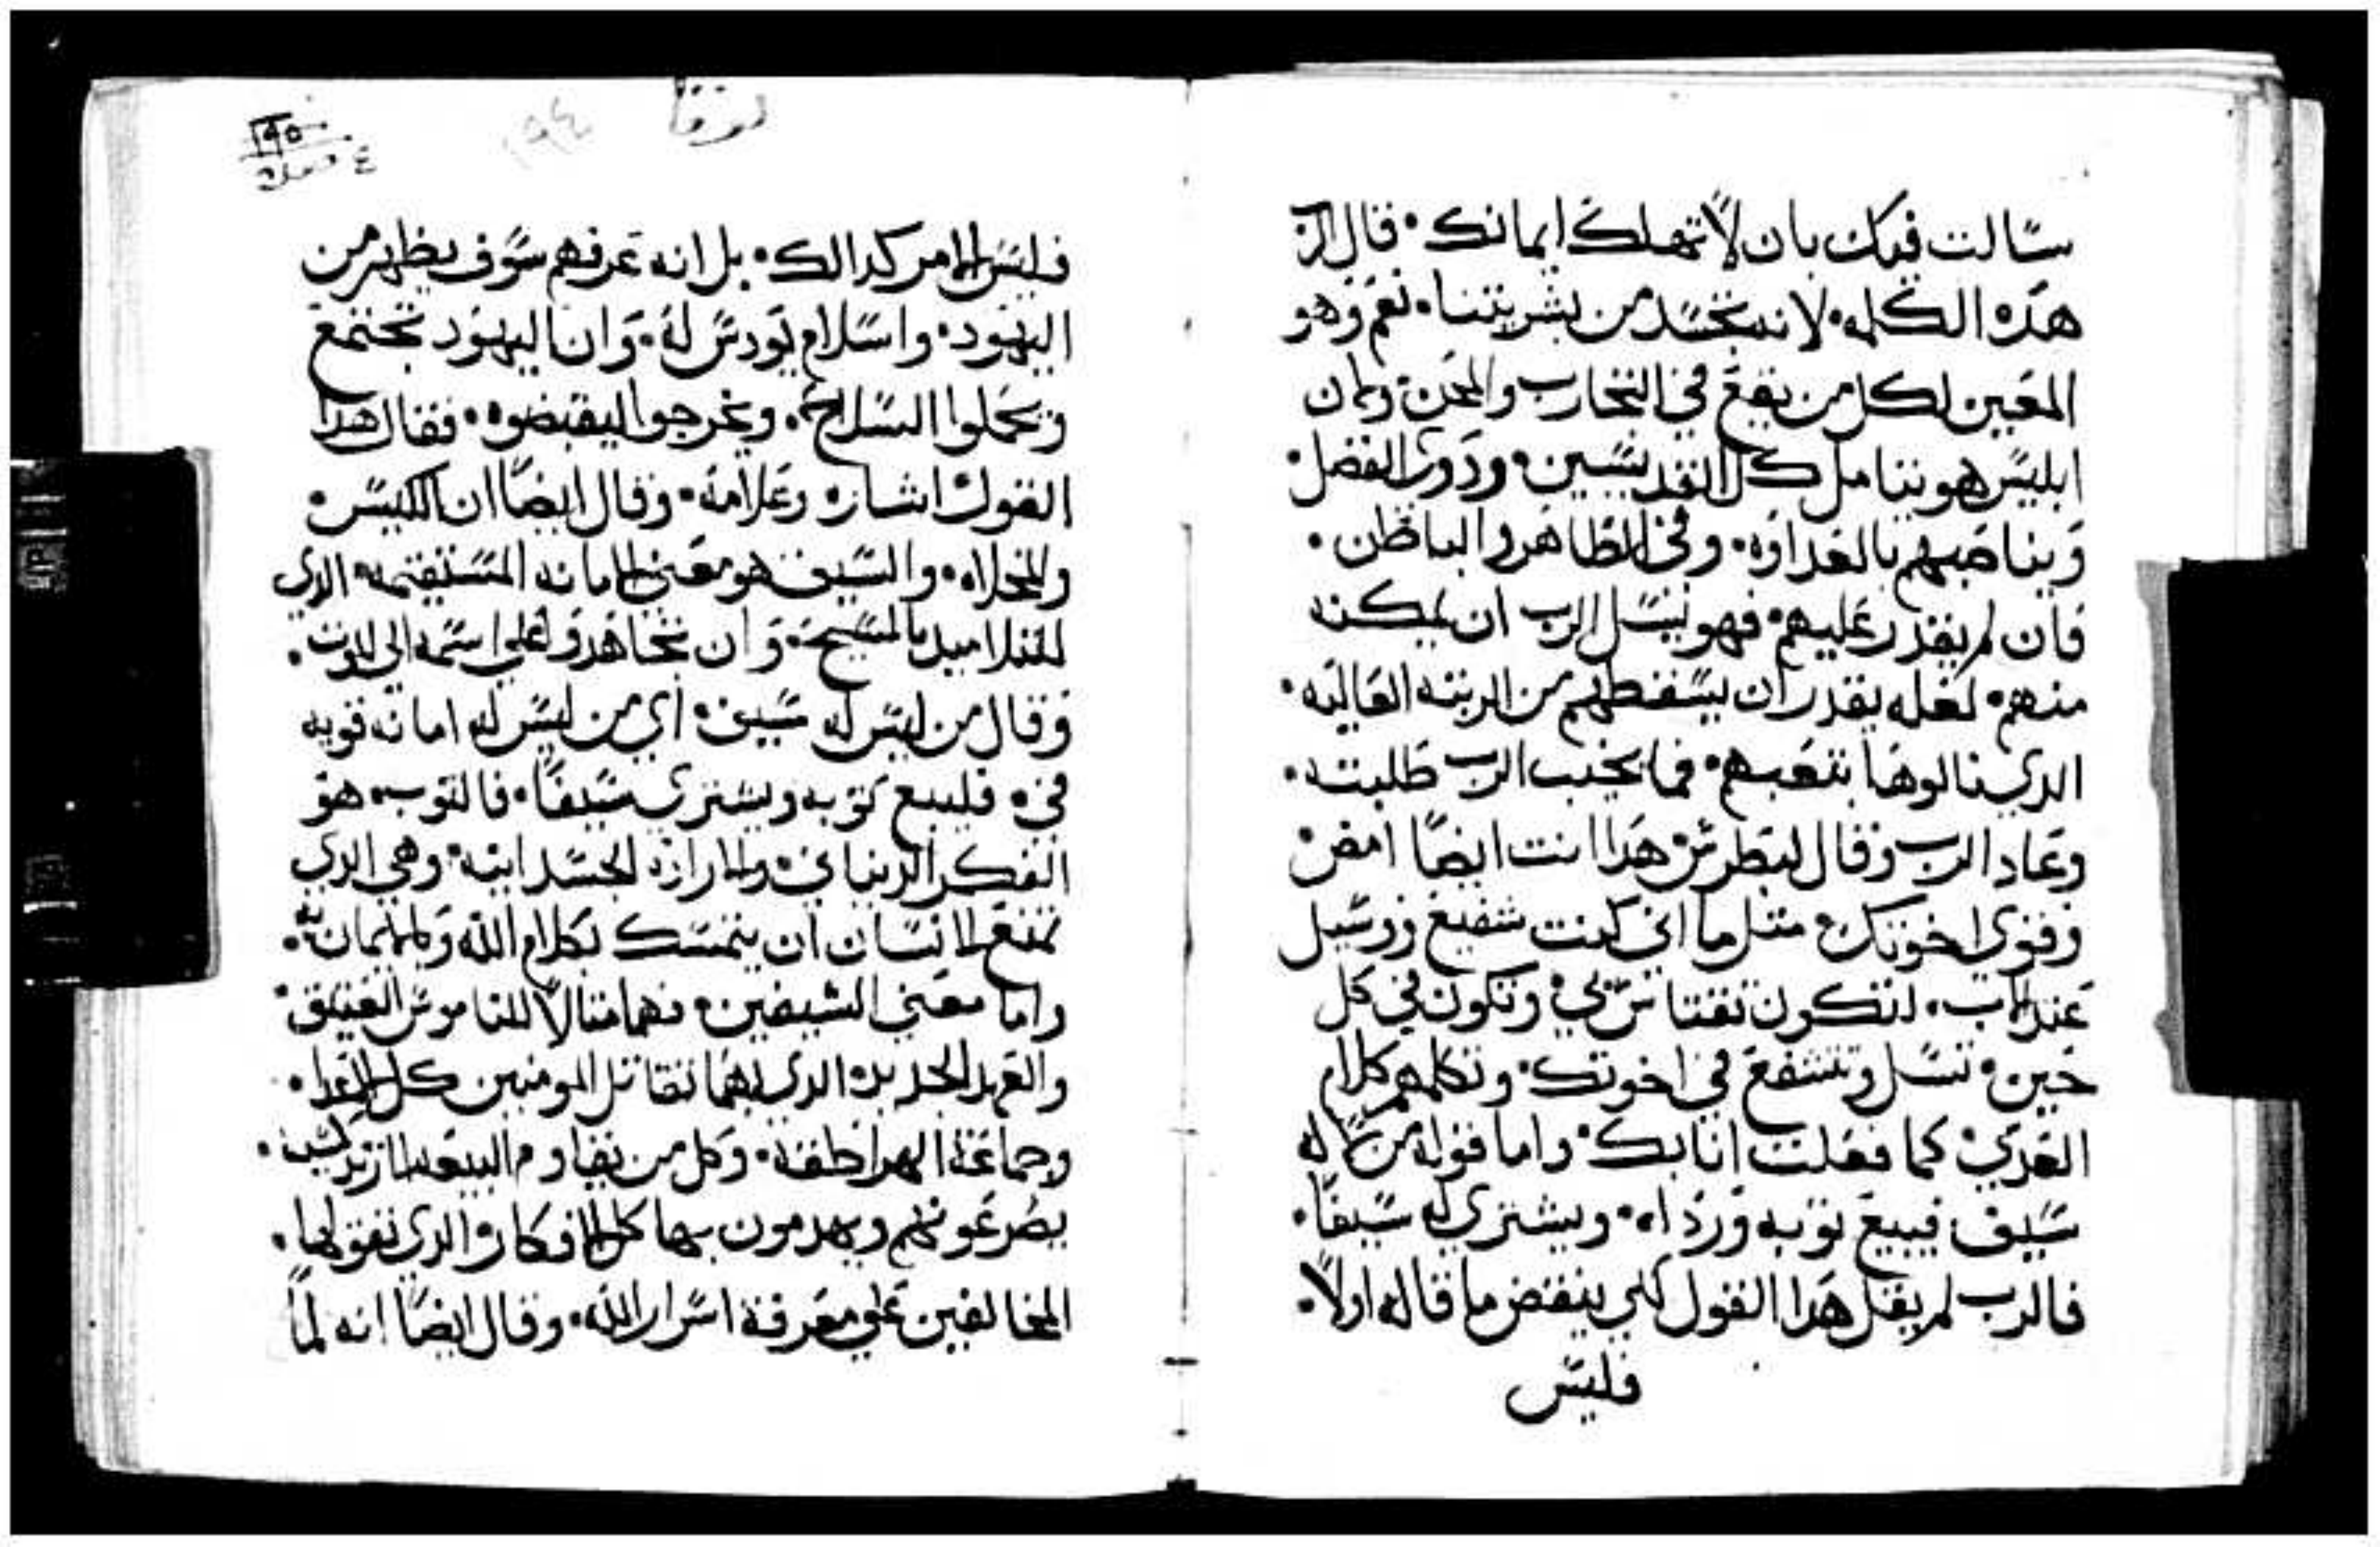 سالت فيك بان لا تهلك ايمانك· قال الرب
هذه الكلمه· لانه تجسد من بشريتنا· نعم وهو
المعين لكل من يقع في التجارب والمحن ولان
ابليس هو يتامل كل القديسين· ودوي الفضل·
ويناصبهم بالعداوه· وفي الظاهر والباطن·
فان لم يقدر عليهم· فهو يسل الرب ان يمكنه
منهم· لعله يقدر ان يسقطهم من الرتبه العاليه·
الدي نالوها بتعبهم· فما يخيب الرب طلبته·
وعاد الرب وقال لبطرس هدا انت ايضا امض
وقوي اخوتك· متل ما اني كنت شفيع ورسيل
عند الاب· لتكون تقتاس بي· وتكون في كل
حين· تسل وتتشفع في اخوتك· وتكلمهم كلام
العزي· كما فعلت انا بك· واما قوله من لا له
سيف فيبيع توبه ورداه· ويشتري له سيفا·
فالرب لم يقل هدا القول لكي ينقض ما قاله اولا·
فليس
لوقا
١٩٤
١٩٥
فليس الامر كدالك· بل انه عرفهم سوف يظهر من
اليهود· واسلام يودس له· وان اليهود تجتمع
وتحملوا السلاح· ويخرجوا ليقبضوه· فقال هدا
القول اشاره وعلامه· وقال ايضا ان الكيس
والمخلاه· والسيف هو معني الامانه المستقيمه· الدي
للتلاميد بالمسيح· وان تجاهدوا علي اسمه الي الموت·
وقال من ليس له سيف· اي من ليس له امانه قويه
في· فليبيع توبه ويشتري سيفا· فالتوب· هو
الفكر الدنياني· والاراده الجسدانيه· وهي الدي
تمنع الانسان ان يتمسك بكلام الله وبالايمان به·
واما معني السيفين· فهما متالا للناموس العتيق·
والعهد الجديد· الدي بهما تقاتل المومنين كل الاعدا·
وجماعة الهراطقه· وكل من يقاوم البيعه الارتدكسيه·
يصرعونهم ويهدمون بها كل الافكار الدي تفق لها·
المخالفين علي معرفة اسرار الله· وقال ايضا انه لما